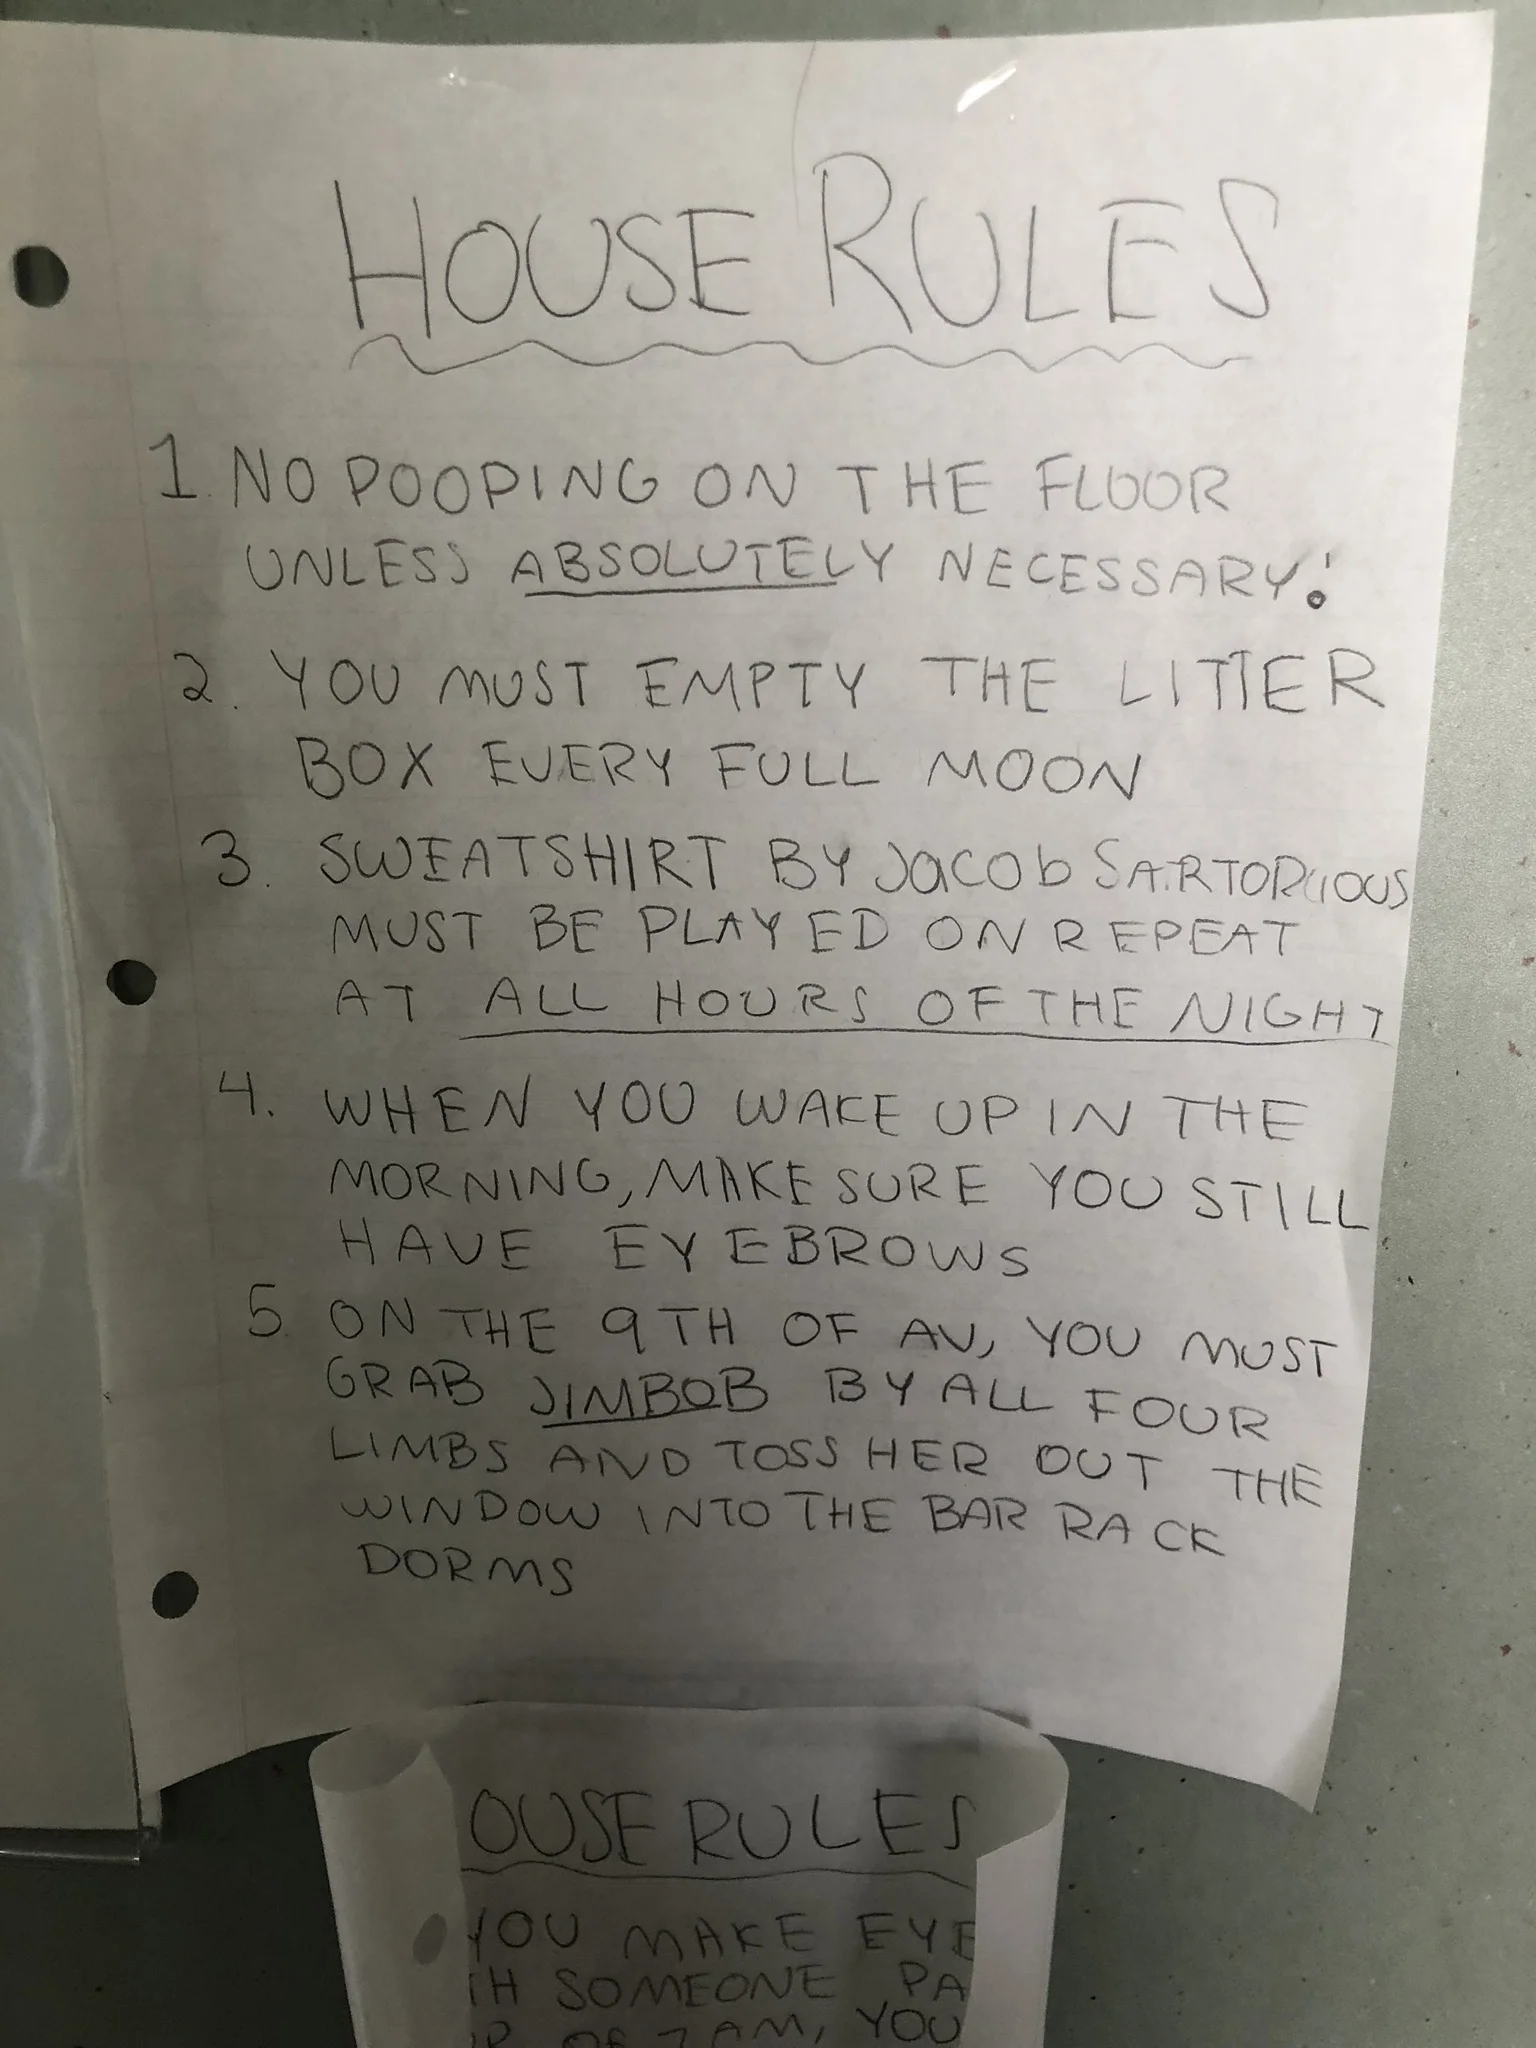 HOUSE RULES
1. NO POOPING ON THE FLOOR
UNLESS ABSOLUTELY NECESSARY!
2. YOU MUST EMPTY THE LITTER
BOX EVERY FULL MOON
3. SWEATSHIRT BY Jacob SARTORIOUS
MUST BE PLAYED ON REPEAT
AT ALL HOURS OF THE NIGHT
4. WHEN YOU WAKE UP IN THE
MORNING, MAKE SURE YOU STILL
HAVE EYEBROWS
5. ON THE 9TH OF AV, YOU MUST
GRAB JIMBOB BY ALL FOUR
LIMBS AND TOSS HER OUT THE
WINDOW INTO THE BARRACK
DORMS
OUSE RULES
YOU MAKE EYE
TH SOMEONE PA
OF 7AM, YOU